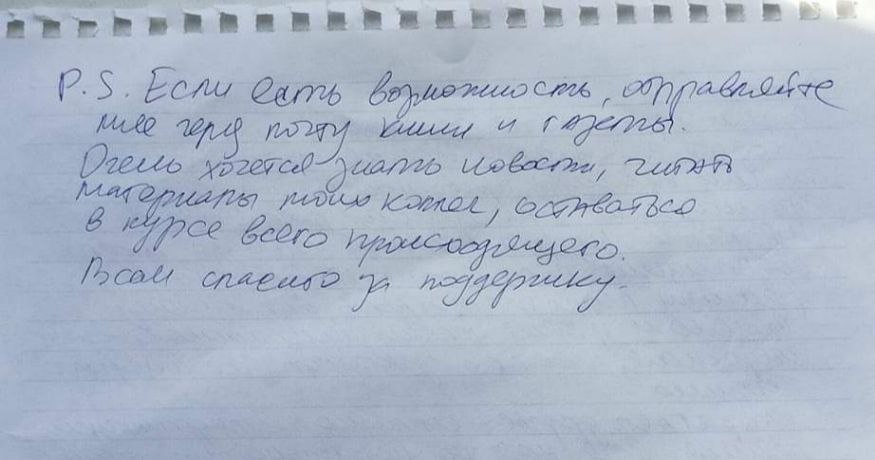 P.S. Если есть возможность, отправляйте
мне через почту книги и газеты.
Очень хочется знать новости, читать
материалы моих коллег, оставаться
в курсе всего происходящего.
Всем спасибо за поддержку.